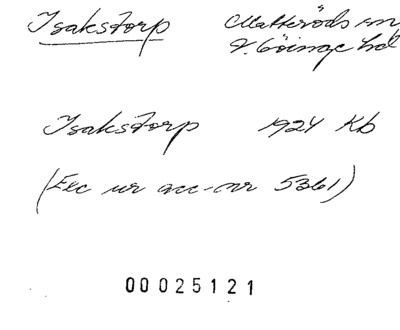 Isakstorp Matteröds sn
V. Göinge hd
Isakstorp 1924 Kb
(Exc ur acc-nr 5361)
00025121